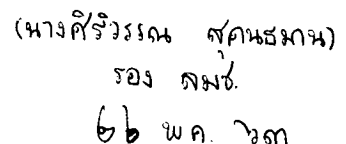 (นางศิริวรรณ สุคนธมาน)
รอง ลมช.
๒๒ พ.ค. ๖๓